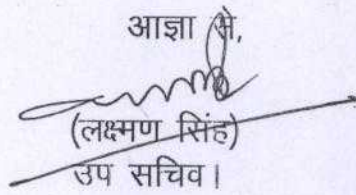 आज्ञा से,
(लक्ष्मण सिंह)
उप सचिव।